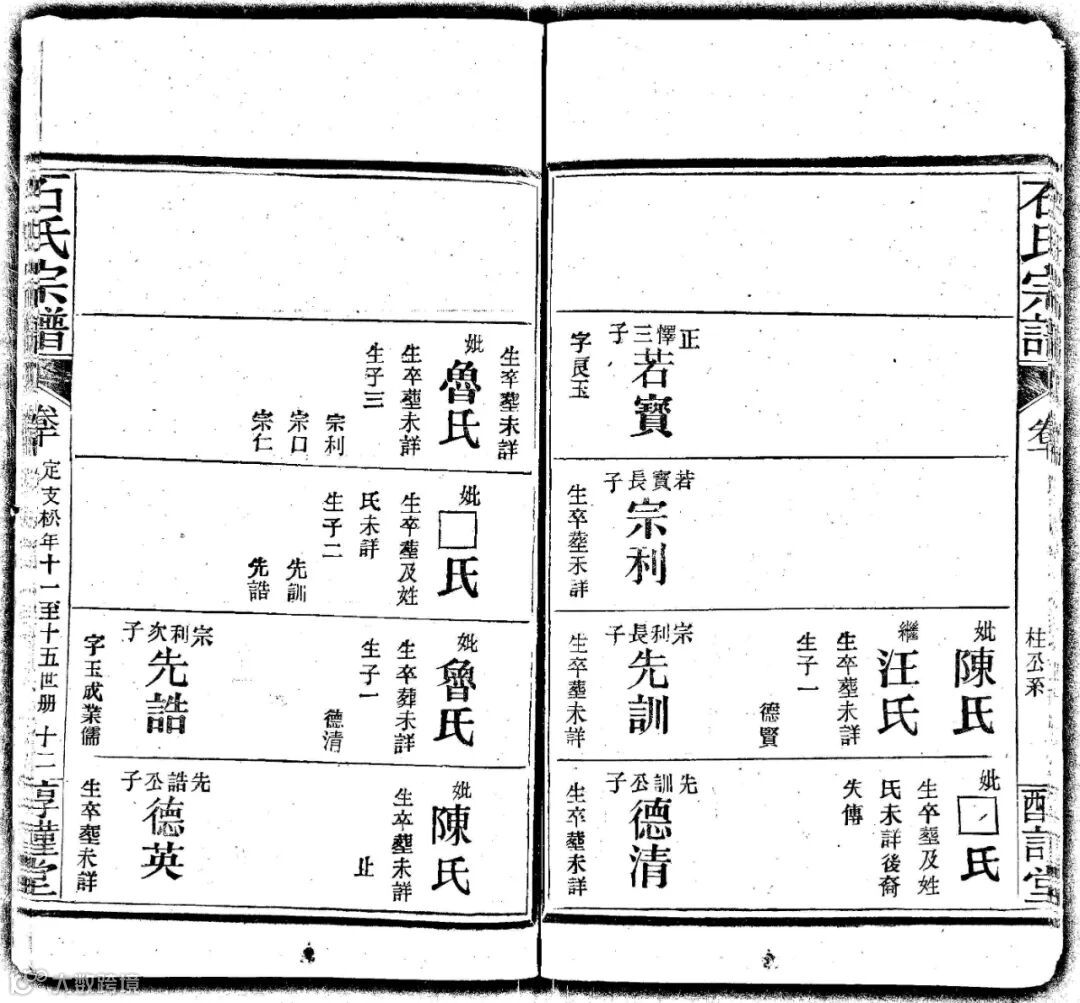 石氏宗譜
桂公系
正懌三子
若寶
字良玉
若寶長子
宗利
生卒塟未詳
妣
陳氏
繼
汪氏
生卒塟未詳
生子一
德賢
宗利長子
先訓
生卒塟未詳
妣
□氏
生卒塟及姓
氏未詳後裔
失傳
先訓公子
德清
生卒塟未詳
生卒塟未詳
妣
魯氏
生卒塟未詳
生子三
宗利
宗口
宗仁
妣
□氏
生卒塟及姓
氏未詳
生子二
先訓
先誥
妣
魯氏
生卒葬未詳
生子一
德清
宗利次子
先誥
字玉成業儒
妣
陳氏
生卒塟未詳
止
先誥公子
德英
生卒塟未詳
石氏宗譜
卷十
定支松年十一至十五世册
十二
大数跨境